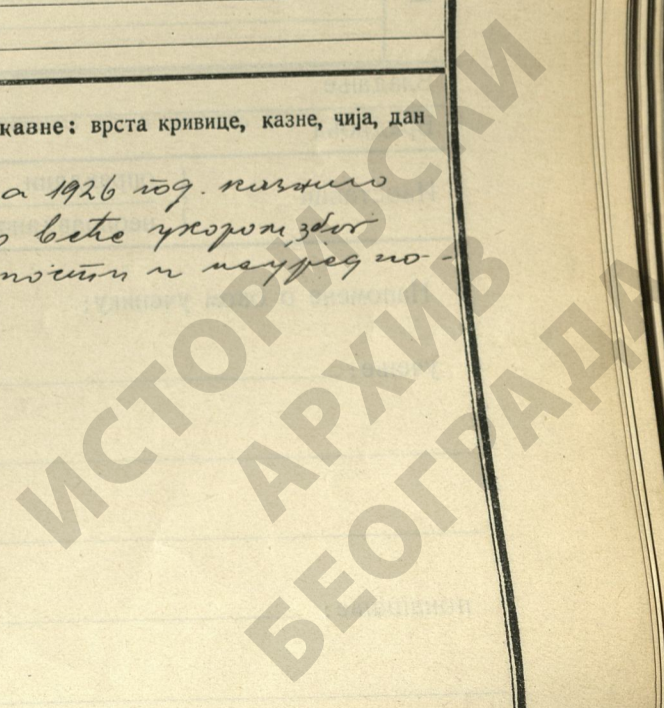 казне: врста кривице, казне, чија, дан
а 1926 год. казнило
веће укором, због
ности и неуредно-
ИСТОРИЈСКИ
АРХИВ
БЕОГРАДА